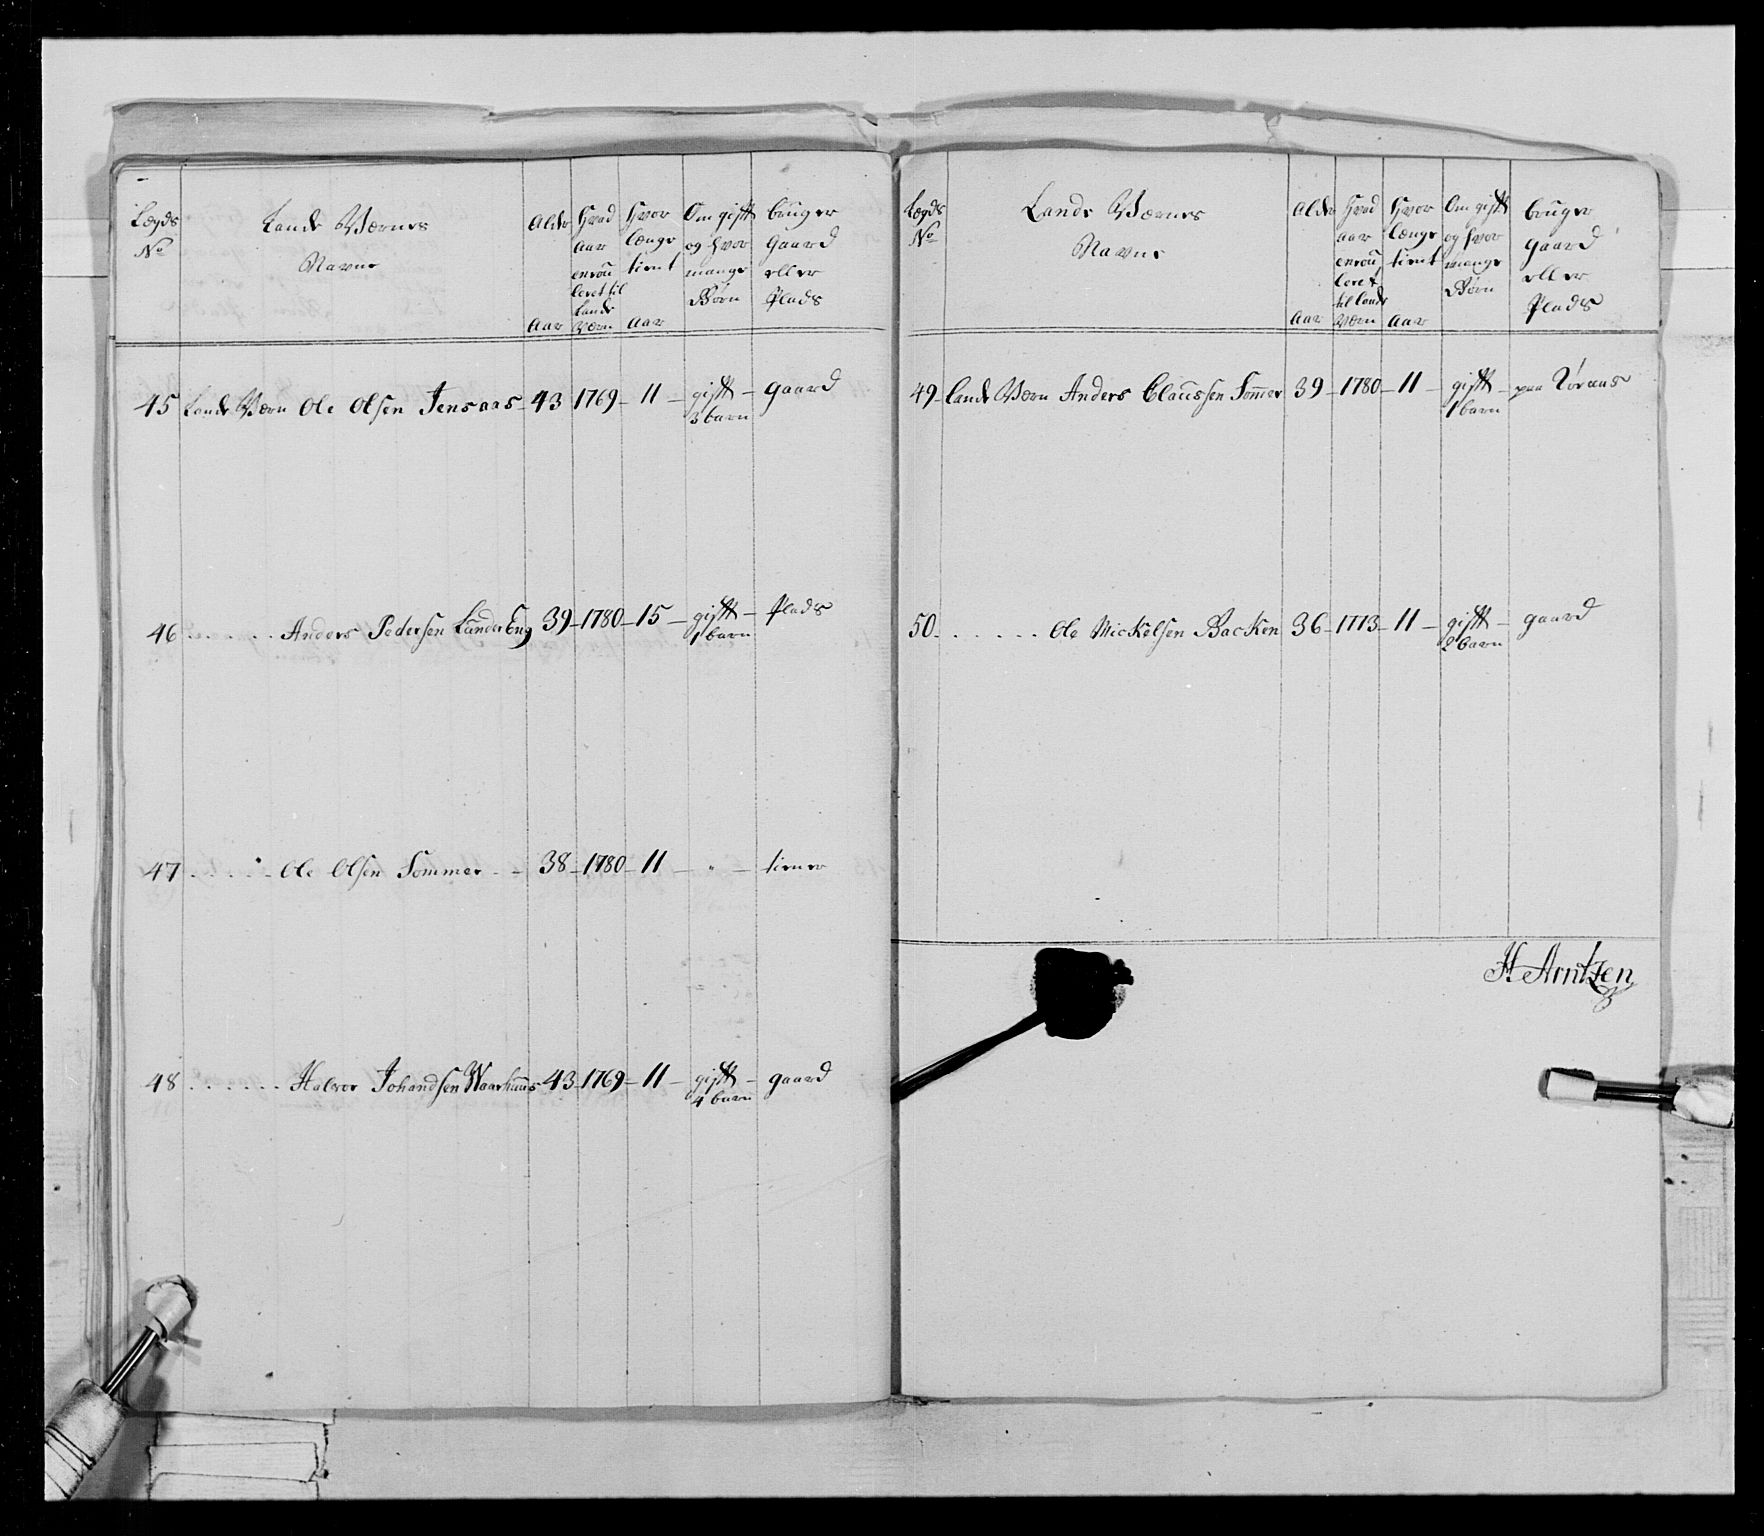 Lægds No
Lande Værnes Navne
Alder Aar
Hvad Aar enroulleret til Lande Værn
Hvor længe tient Aar
Om gifft og hvor mange Børn
bruger gaard eller Plads
45 Lande Værn Ole Olsen Jensaas 43 1769 11 gifft 3 barn gaard
46 Anders Pedersen LunderEng 39 1780 15 gifft 1 barn Plads
47 Ole Olsen Sommer 38 1780 11 " tiener
48 Halvor Johandsen Waarhuus 43 1769 11 gifft 4 barn gaard
Lægds No
Lande Værnes Navne
Alder Aar
Hvad Aar enroulleret til Lande Værn
Hvor længe tient Aar
Om gifft og hvor mange Børn
bruger gaard eller Plads
49 Lande Værn Anders Claussen Sommer 39 1780 11 gifft 1 barn paa Røraas
50 Ole Mickelsen Backen 36 1773 11 gifft 2 barn gaard
H Arntzen